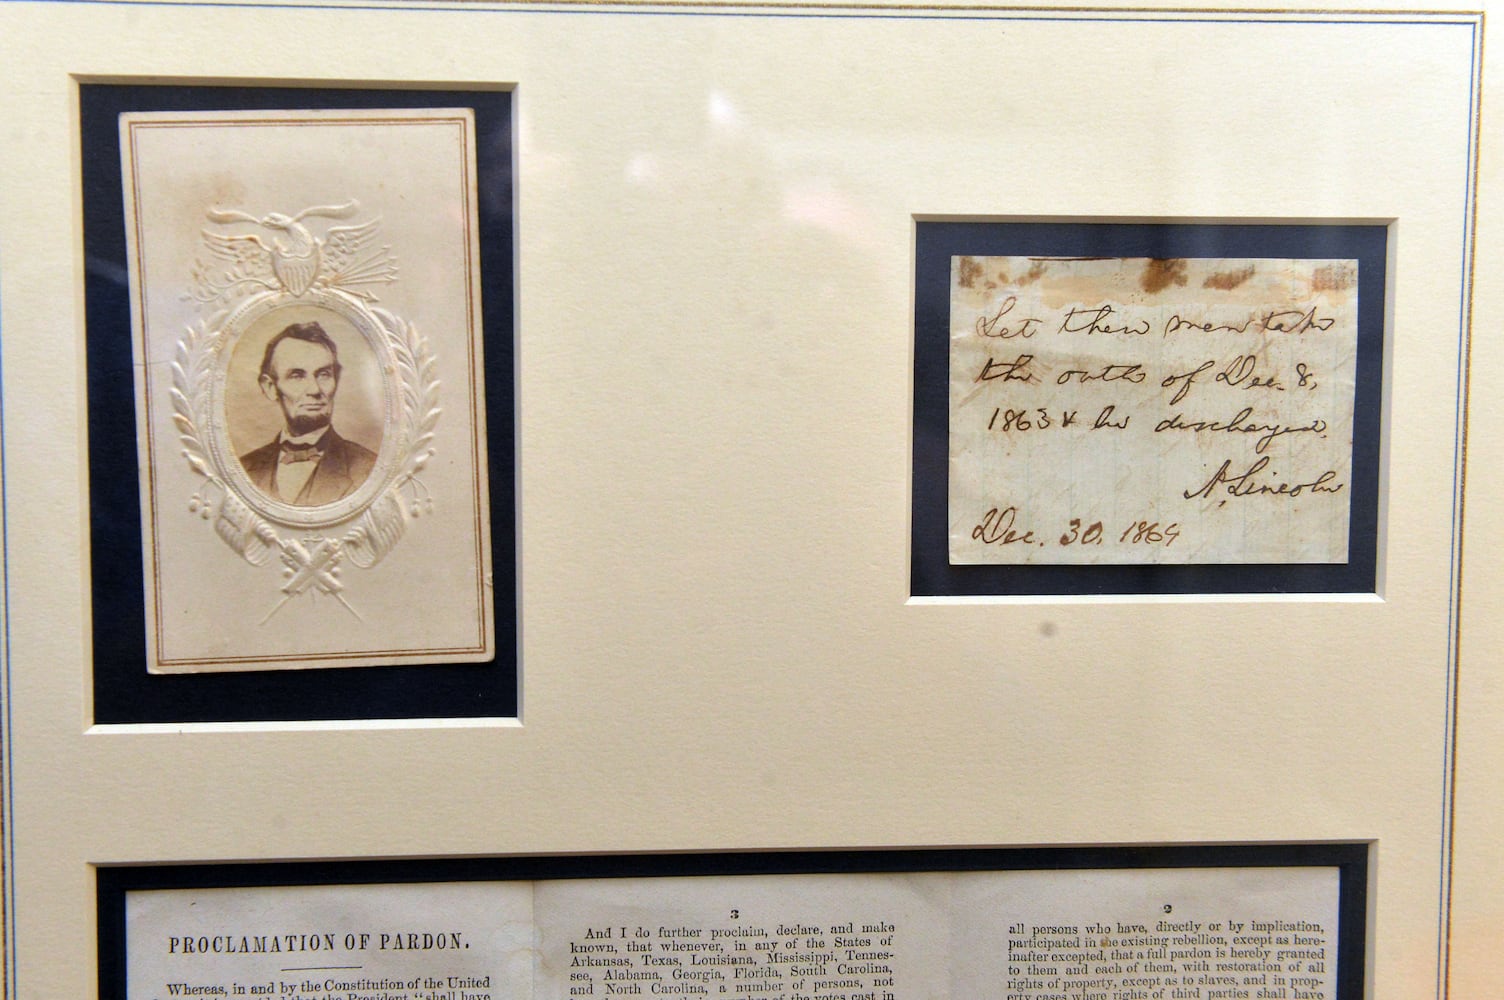 Let these men take
the oath of Dec. 8,
1863 & be discharged.
A. Lincoln
Dec. 30, 1864
PROCLAMATION OF PARDON.
Whereas, in and by the Constitution of the United
that the President "shall have
3
And I do further proclaim, declare, and make
known, that whenever, in any of the States of
Arkansas, Texas, Louisiana, Mississippi, Tennes-
see, Alabama, Georgia, Florida, South Carolina,
and North Carolina, a number of persons, not
number of the votes cast in
2
all persons who have, directly or by implication,
participated in the existing rebellion, except as here-
inafter excepted, that a full pardon is hereby granted
to them and each of them, with restoration of all
rights of property, except as to slaves, and in prop-
erty cases where rights of third parties shall have